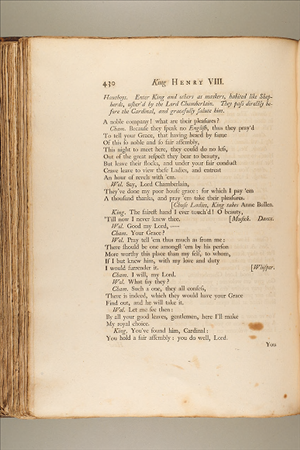 430 King HENRY VIII.
Hautboys. Enter King and others as maskers, habited like Shep-
herds, usher'd by the Lord Chamberlain. They pass directly be-
fore the Cardinal, and gracefully salute him.
A noble company! what are their pleasures?
Cham. Because they speak no English, thus they pray'd
To tell your Grace, that having heard by fame
Of this so noble and so fair assembly,
This night to meet here, they could do no less,
Out of the great respect they bear to beauty,
But leave their flocks, and under your fair conduct
Crave leave to view these Ladies, and entreat
An hour of revels with 'em.
Wol. Say, Lord Chamberlain,
They've done my poor house grace: for which I pay 'em
A thousand thanks, and pray 'em take their pleasures.
[Chuse Ladies, King takes Anne Bullen.
King. The fairest hand I ever touch'd! O beauty,
'Till now I never knew thee. [Musick. Dance.
Wol. Good my Lord, —
Cham. Your Grace?
Wol. Pray tell 'em thus much as from me:
There should be one amongst 'em by his person
More worthy this place than my self, to whom,
If I but knew him, with my love and duty
I would surrender it. [Whisper.
Cham. I will, my Lord.
Wol. What say they?
Cham. Such a one, they all confess,
There is indeed, which they would have your Grace
Find out, and he will take it.
Wol. Let me see then:
By all your good leaves, gentlemen, here I'll make
My royal choice.
King. You've found him, Cardinal:
You hold a fair assembly: you do well, Lord.
You